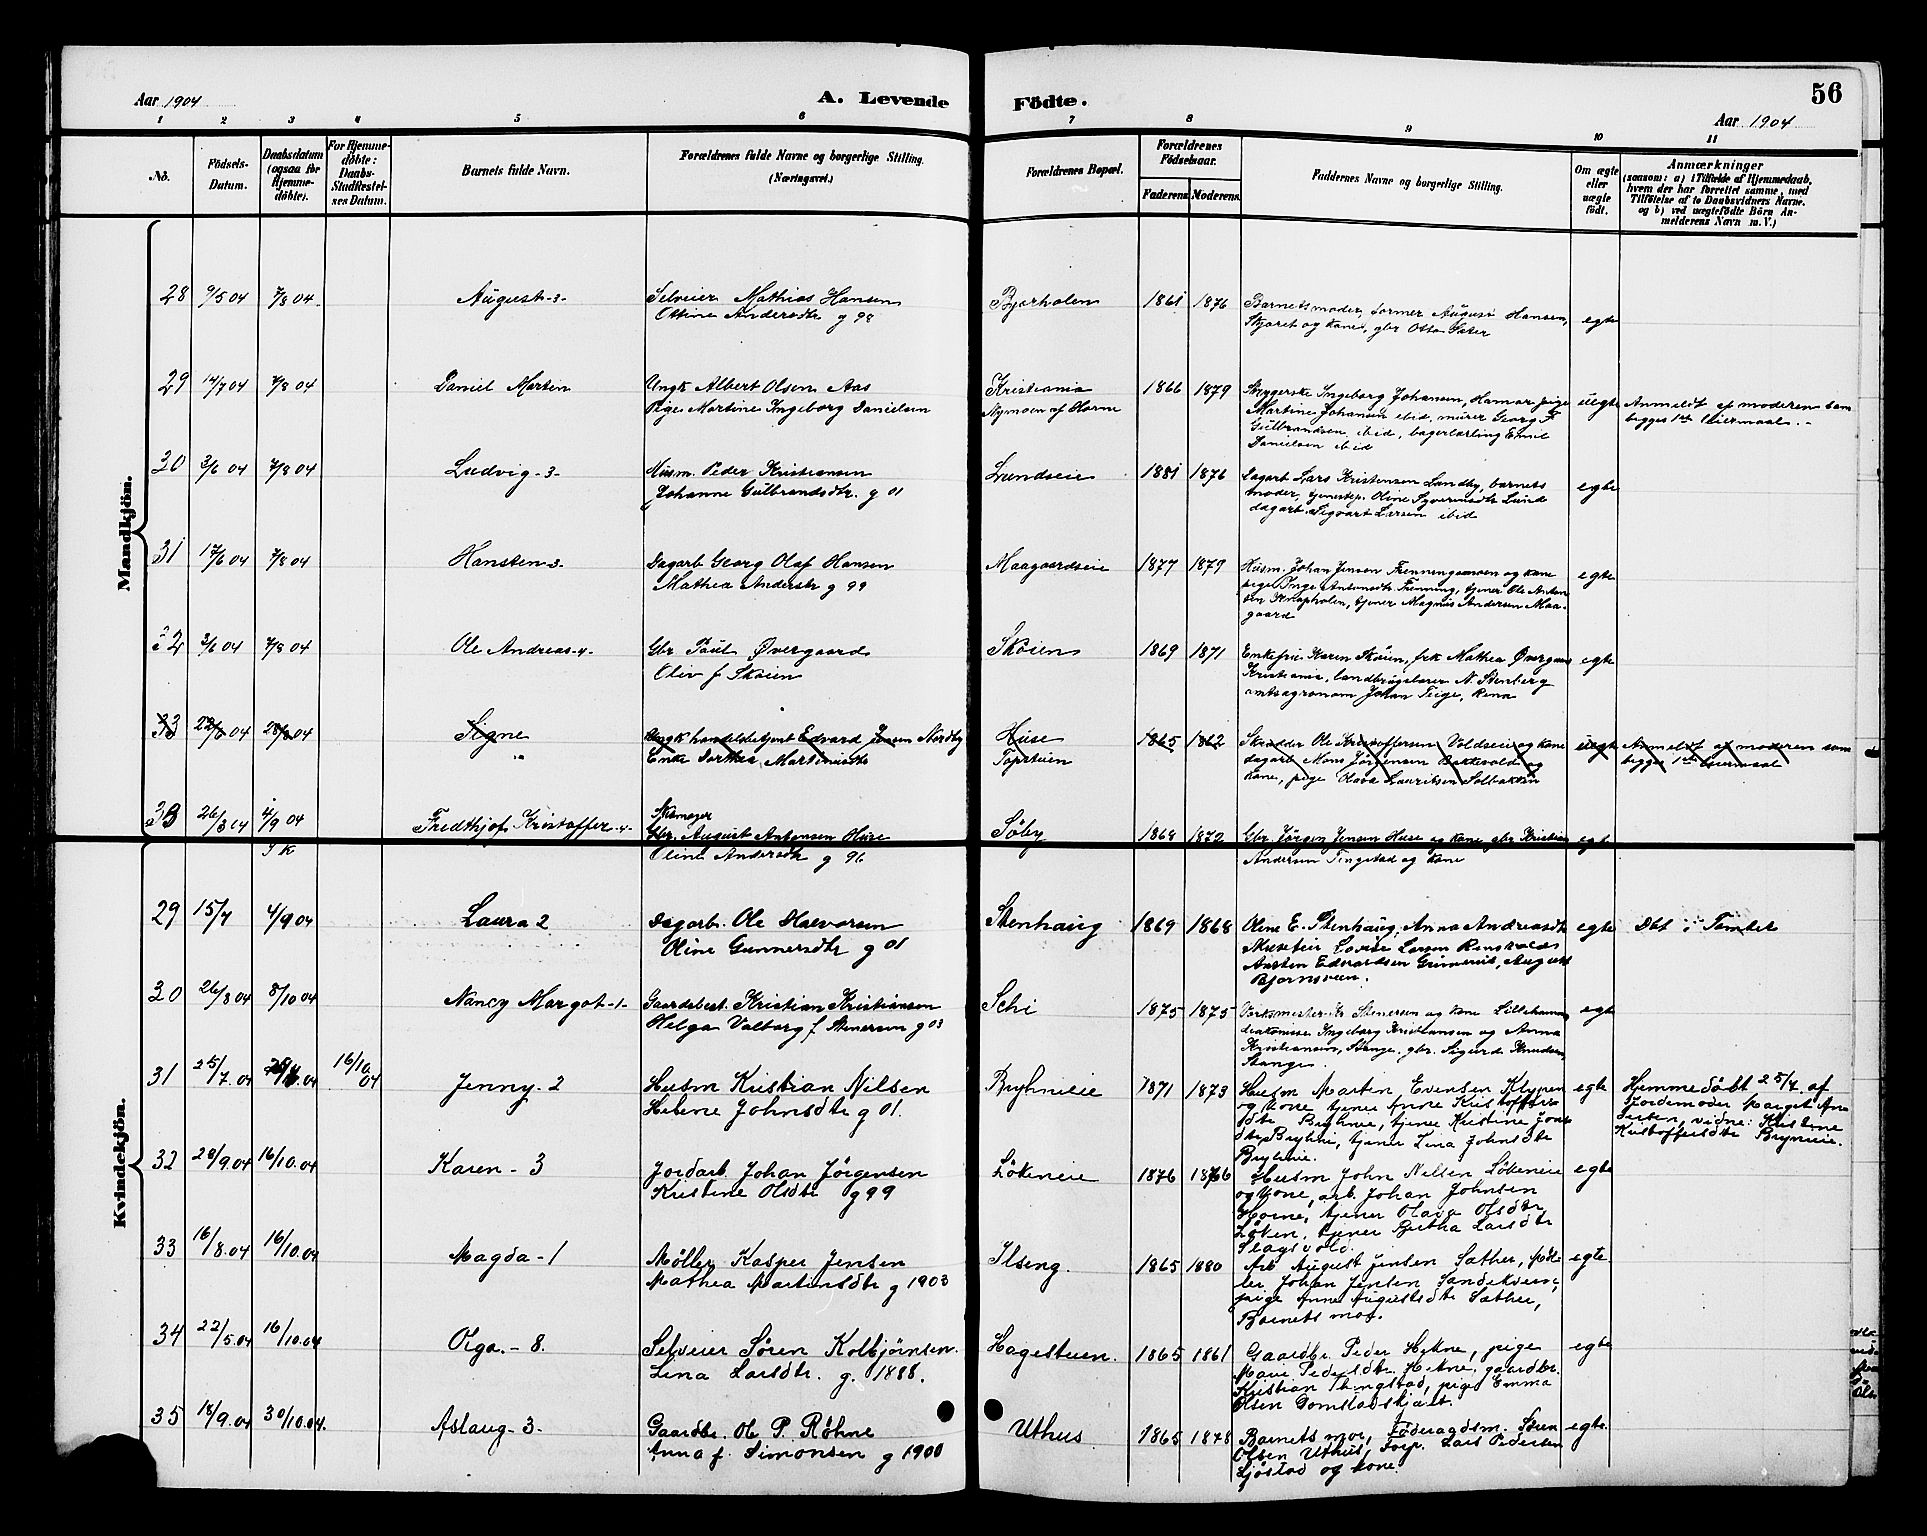 Aar 1904
A. Levende
Födte.
56
Aar 1904
1 2 3 4 5 6 7 8 9 10 11
No.
Födsels-
Datum.
Daabsdatum
(ogsaa for
Hjemme-
döbte).
For Hjemme-
döbte:
Daabs-
Stadfæstel-
ses Datum.
Barnets fulde Navn.
Forældrenes fulde Navne og borgerlige Stilling.
(Næringsvei.)
Forældrenes Bopæl.
Forældrenes
Födselsaar.
Faderens Moderens
Faddernes Navne og borgerlige Stilling.
Om ægte
eller
uægte
födt.
Anmærkninger
(saasom: a) i Tilfælde af Hjemmedaab,
hvem der har forrettet samme, med
Tilföielse af to Daabsvidners Navne.
og b) ved uægtefödte Börn An-
melderens Navn m.V.)
Mandkjön.
28 9/5 04 7/8 04 August -3- Selveier Mathias Hansen Bjørholen 1861 1876 Barnets moder, former August Hansen,
Ottine Andersdtr g 98 Skjøret og kone, gbr Otto Sæter egte
29 14/7 04 7/8 04 Daniel Martin Ungk Albert Olsen Aas Kristiania 1866 1879 Ingeborg Johansen, Hamar, pige uegte Anmeldt af moderen som
Pige Martine Ingeborg Danielsen Nymoen af Horne Martine Johansen ibid, murer Georg F begges 1ste leiermaal.
Gulbrandsen ibid, bagerlærling Emil
Danielsen ibid
30 3/6 04 7/8 04 Ludvig -3- Husm. Peder Kristiansen Lundseie 1881 1876 Dagarb Lars Kristensen Lundby, barnets
Johanne Gulbrandsdtr. g 01 moder, tjenestep. Oline Syversensdtr Lund egte
dagarb. Sigvart Larsen ibid
31 17/6 04 7/8 04 Hansten -3- Dagarb Georg Olaf Hansen Maagaardseie 1877 1879 Husm. Johan Jensen Frenningsmoen og kone
Mathea Anderstr g 99 pige Inga Antonsdtr Frenning, tjener Ole Anton egte
sen Knapholen, tjener Magnus Andersen Maa-
gaard
32 3/6 04 7/8 04 Ole Andreas -4- Gbr Paul Øvergaard Skøien 1869 1871 Enkefru Karen Skøien, frk Mathea Øvergaard egte
Oliv f Skøien Kristiania, landbrugslærer N. Stenberg
amtsagronom Johan Teige, Rena
33 22/6 04 28/8 04 Signe Ungk handelsbetjent Edvard Jensen Nordby Huse 1865 1862 Skrædder Ole Kristoffersen Voldseie og kone uegte Anmeldt af moderen som
Enke Dorthea Martinusdtr Topstuen dagarb Mons Jørgensen Bakkevold og begges 1ste leiermaal
kone, pige Olava Lauritsen Solbakken
33 26/3 04 4/9 04 Fredthjof Kristoffer -4- Skomager Søby 1868 1872 Gbr Jørgen Jensen Huse og kone gbr Kristian egte
Gbr. August Antonsen Huse Andersen Tingstad og kone
Oline Andersdtr g 96
Kvindekjön.
29 15/7 4/9 04 Laura 2 Dagarb. Ole Halvorsen Stenhaug 1869 1868 Oline E. Stenhaug, Anna Andreasdtr egte Dbt i Tomter
Oline Gunnersdtr g 01 Lovise Larsen
Anton Edvardsen Grimerud, August
Bjørnsveen.
30 26/8 04 8/10 04 Nancy Margot -1- Gaardsbest. Kristian Kristiansen Schi 1875 1875 Verksmester Kr Stenersen og kone Lillehammer egte
Helga Valborg f Stenersen g 03 diakonisse Ingeborg Kristiansen og Anna
Kristiansen, Stange. gbr. Sigurd Knudsen
Stange.
31 25/7.04 16/10 04 Jenny -2 Husm Kristian Nilsen Bryhnieie 1871 1873 Husm Martin Evensen Klypen egte Hjemmedöbt 25/7. af
Helene Johnsdtr g 01. og kone, tjener Anne Kristoffers- Jordemoder Marget An-
dtr Bryhnie, tjener Kristine Johns dersen, vidne: Kristine
dtr Bryhnie, tjener Lina Johnsdtr Kristoffersdtr Brynieie.
Bryhnie.
32 28/9.04 16/10.04 Karen - 3 Jordarb. Johan Jörgensen Lökeneie 1876 1876 Husm John Nilsen Lökeneie egte
Kristine Olsdtr g 99 og kone, arb. Johan Johnsen
Horne, tjener Olava Olsdtr
Löken, tjener Bertha Larsdtr
Slagsvold.
33 16/8.04 16/10.04 Magda -1 Møller Kasper Jensen Ilseng. 1865 1880 Arb August Jensen Sæther, Möl- egte.
Mathea Martinsdtr g 1903 ler Johan Jensen Sandekvern,
pige Anne Augustsdtr Sæther,
Barnets mor.
34 22/5.04 16/10.04 Olga. - 8. Selveier Sören Kolbjörnsen. Hagestuen. 1865 1861 Gaardbr. Peder Hekne, pige egte
Lina Larsdtr. g. 1888. Marie Pedersdtr. Hekne, gaardbr.
Kristian Thingstad, pige Emma
Olsen Domstadskjæt.
35 18/9.04 30/10.04. Aslaug -3. Gaardbr. Ole P. Röhne Uthus 1865 1878 Barnets mor, Föderaadsm. Sven egte.
Anna f. Simonsen g 1900 Olsen Uthus, Forp. Lars Pedersen
Sjöstad og kone.